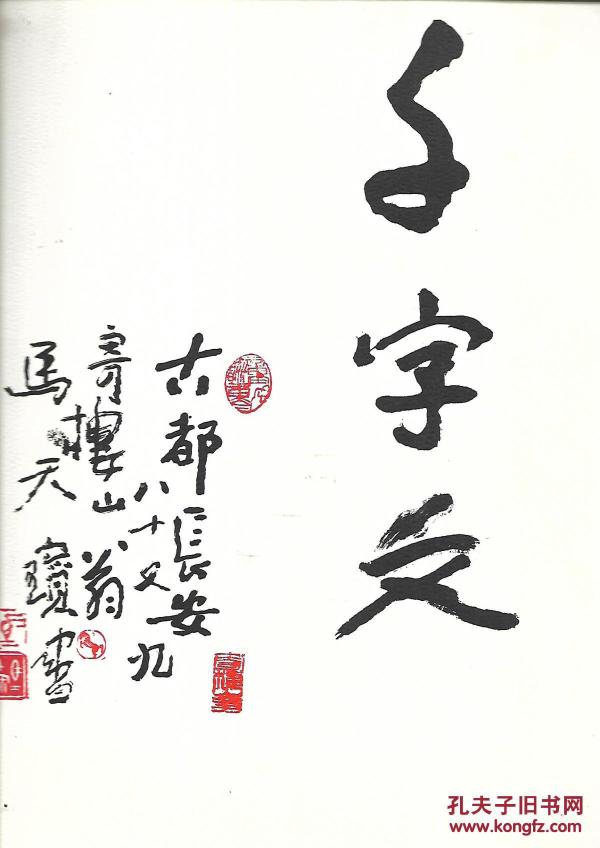 千字文
古都張安
八十又九
樓山翁
馬天寶書
孔夫子旧书网
www.kongfz.com